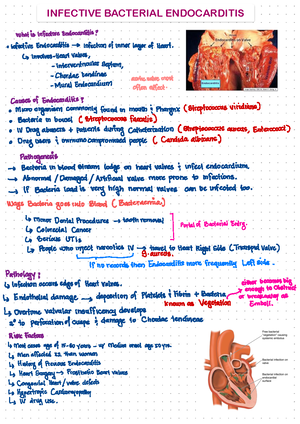 INFECTIVE BACTERIAL ENDOCARDITIS
What is Infective Endocarditis?
• Infective Endocarditis → Infection of inner layer of Heart.
↳ Involves - Heart valves,
- Interventricular Septum,
- Chordae tendinae
- Mural Endocardium
Causes of Endocarditis?
• Micro organism commonly found in mouth & Pharynx (Streptococcus viridians)
• Bacteria in bowel (Streptococcus faecalis)
• IV Drug abusers & patients during Catheterization (Streptococcus aureus, Enterococci)
• Drug users & immunocompromised people (Candida albicans)
Pathogenesis
→ Bacteria in blood stream lodge on heart valves & infect endocardium.
→ Abnormal / Damaged / Artificial valves more prone to infections.
→ If Bacteria load is very high normal valves can be infected too.
Ways Bacteria goes into Blood (Bacteraemia)
↳ Minor Dental Procedures → tooth removal
↳ Colorectal Cancer
↳ Serious UTIs
Portal of Bacterial Entry.
↳ People who inject narcotics IV → travel to Heart Right Side (Tricuspid Valve)
S. aureus.
If no records then Endocarditis more frequently Left side.
Pathology:
↳ Infection occurs edge of Heart valves.
↳ Endothelial damage → deposition of Platelets & Fibrin + Bacteria
known as Vegetation
either becomes big
enough to Obstruct
or breakaway as
Emboli.
↳ Overtime valvular insufficency develops
2° to perforation of cusps & damage to Chordae tendineae
Risk Factors
↳ Men affected 2x then women
↳ History of Previous Endocarditis
↳ Heart Surgery → Prosthetic Heart valves
↳ Congenital Heart / valve defects
↳ Hypertropic Cardiomyopathy
↳ IV drug use.